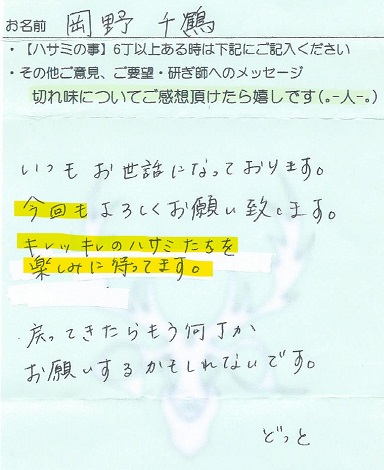 お名前 岡野 千鶴
・【ハサミの事】6丁以上ある時は下記にご記入ください
・その他ご意見、ご要望・研ぎ師へのメッセージ
切れ味についてご感想頂けたら嬉しです(｡-人-｡)
いつもお世話になっております。
今回もよろしくお願い致します。
キレッキレのハサミたちを
楽しみに待ってます。
戻ってきたらもう何丁か
お願いするかもしれないです。
どっと